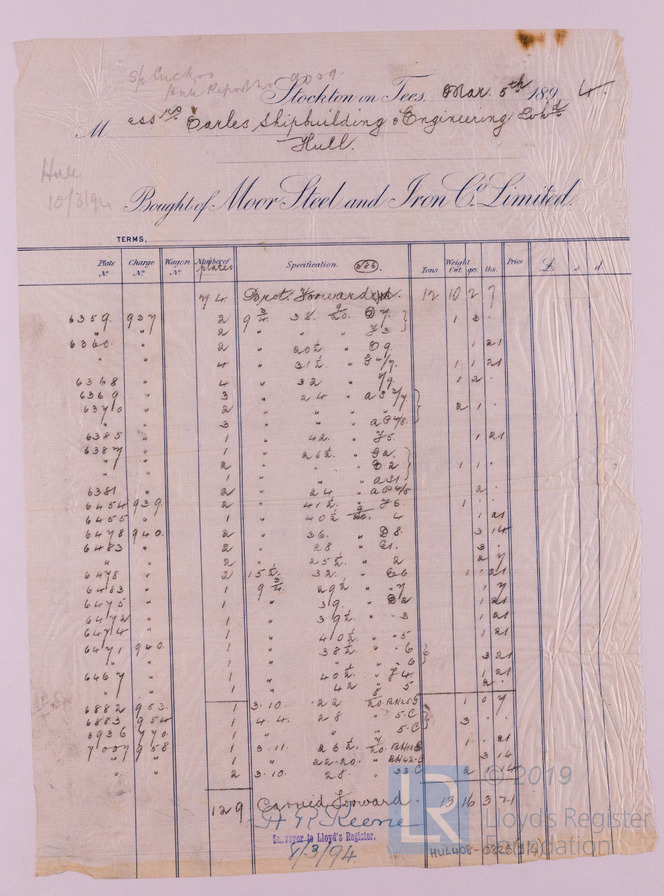 S/S Cuckoo
Hull Report No 9029
Stockton on Tees. Mar 5th 1894.
Messrs Earles Shipbuilding & Engineering Co Ltd
Hull.
Hull
10/3/94
Bought of Moor Steel and Iron Co Limited.
TERMS,
Plate No Charge No Wagon No Number of plates Specification. 556. Tons Weight Cwt. qrs. lbs. Price £ s d
74 Brot. Forward 12 10 2 7
6359 937 2 9 3/4 38 9/20 D7 1 3
" " 2 " " " F3
6360 " 2 " 20 1/2 " D9 1 21
" " 4 " 31 1/2 " 1 1 21
6368 " 4 " 32 " 1 2
6369 " 3 " 24 "
6370 " 2 " " " 2 1
" " 3 " " "
6385 " 1 " 42 " F5 1 21
6387 " 1 " 26 1/2 " G2
" " 2 " " " D2 1 1
" " 1 " " "
6381 " 2 " 24 " 2
6454 939 2 " 41 1/2 " F6 1
6455 " 1 " 40 1/2 9/20 4 1 21
6478 940 2 " 36 " D8 3 14
6483 " 2 " 28 " 3
" " 2 " 25 1/2 " 2 2 7
6478 " 2 15 1/2 32 " E6 1 21
6483 " 1 9 3/4 29 1/2 " 7 1 7
6475 " 1 " 39 " D2 1 21
6472 " 1 " 39 1/2 " 3 1 21
6474 " 1 " 40 1/2 " 5 1 21
6471 940 1 " 38 1/2 " 6
" " 1 " " " 6 3 21
6467 " 1 " 40 1/2 " F4 1 21
" " 1 " 42 " 5 2
6882 953 1 3.10 22 1 0 7
6883 954 1 4.4 28 " 5.C 3
6936 970 1 " " " 5.C
7007 958 1 3.11 26 1/2 1 21
" " 1 " 22.20 3 14
" " 2 3.10 28 " 33C 2 14
129 Carried Forward 13 16 3 21
H R Keene
Surveyor to Lloyd's Register.
8/3/94
© 2019
Lloyd's Register
Foundation
LR
HUL408-0326